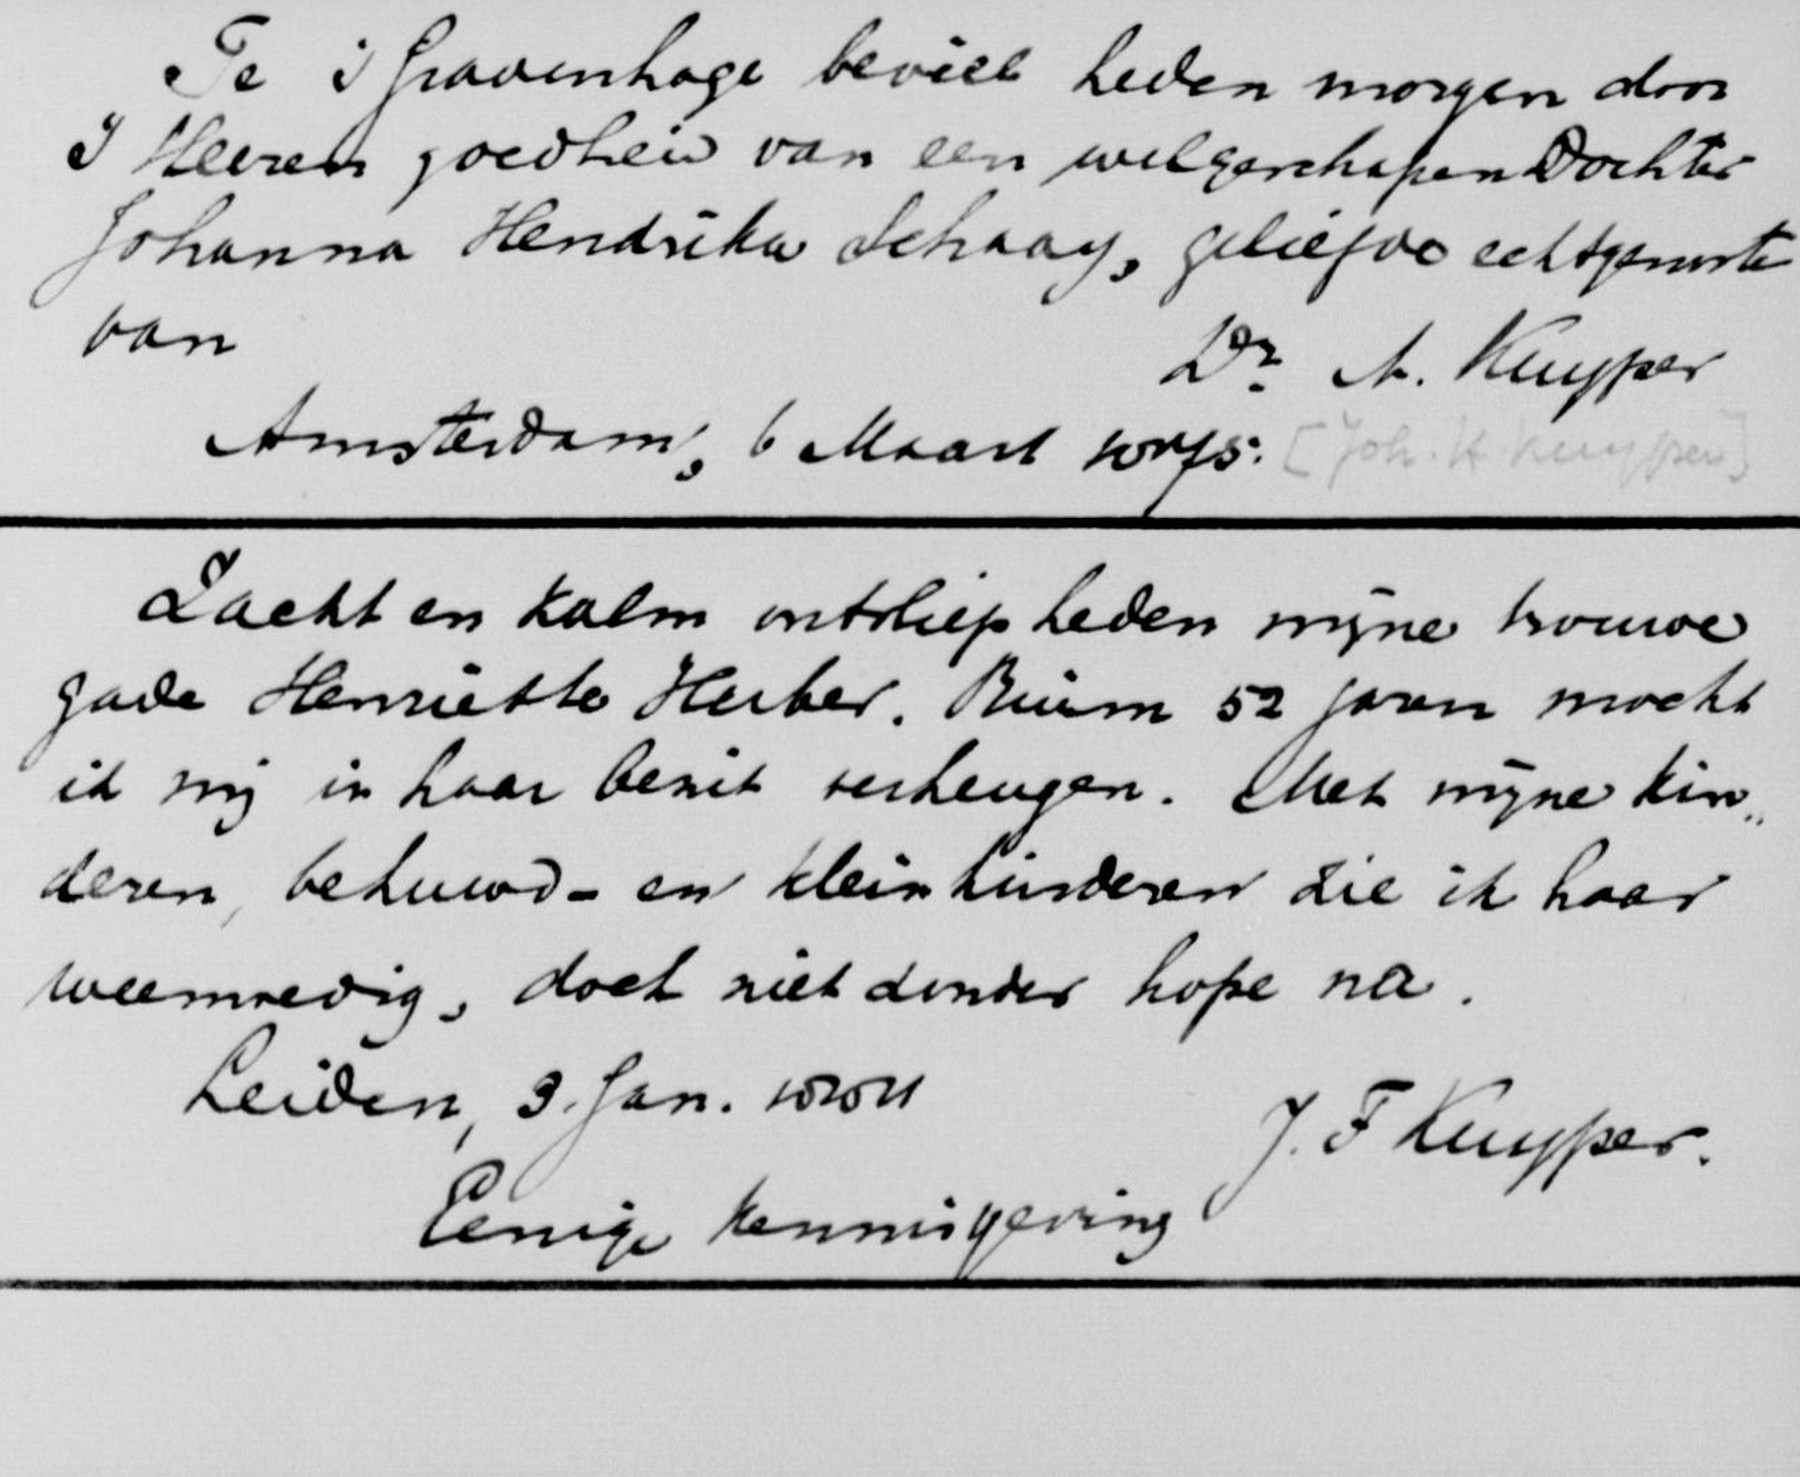 Te 's Gravenhage beviel heden morgen door
's Heeren goedheid van een welgeschapen Dochter
Johanna Hendrika Schaay, geliefde echtgenoote
van
Dr. A. Kuyper
Amsterdam, 6 Maart 1875. [Joh. H. Kuyper]
Zacht en kalm ontsliep heden mijne trouwe
gade Henriette Huber. Ruim 52 jaren mocht
ik mij in haar bezit verheugen. Met mijne kin„
deren, behuwd- en kleinkinderen zie ik haar
weemoedig, doch niet zonder hope na.
Leiden, 3. Jan. 1881
J. F Kuyper.
Eenige kennisgeving